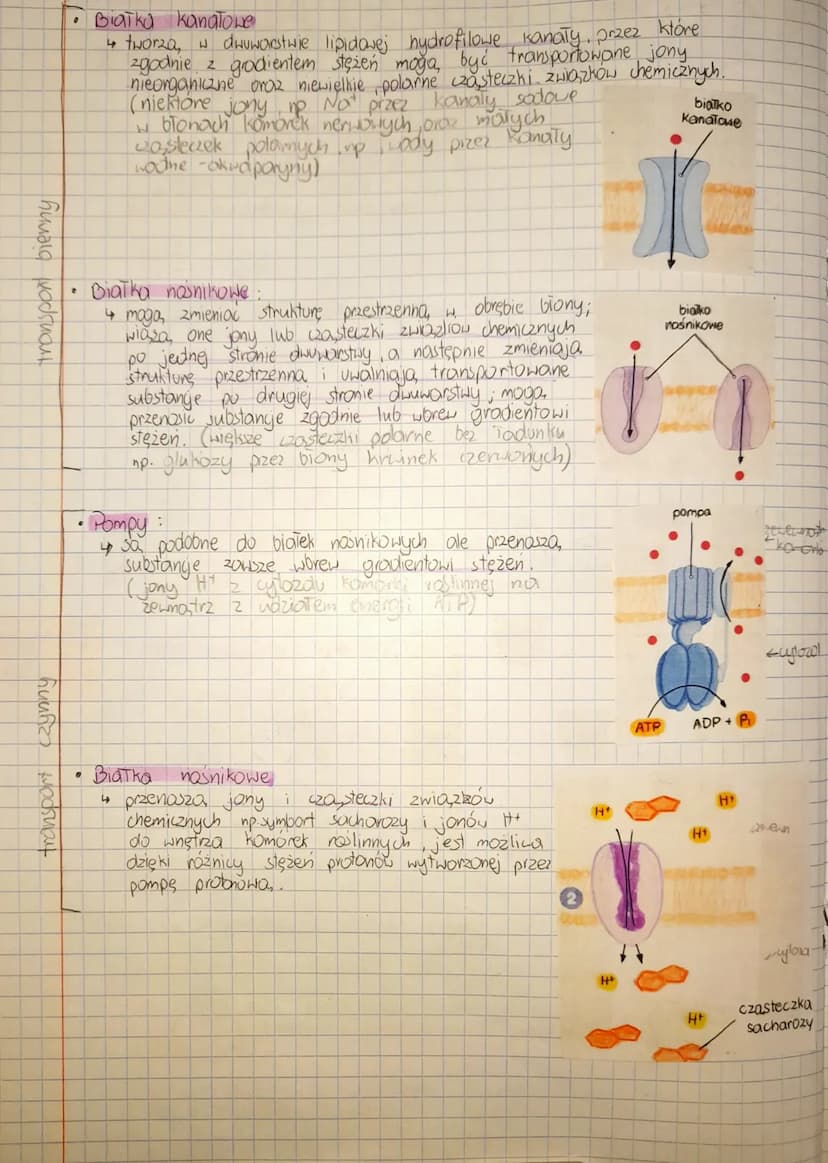 • Białka kanałowe
↳ tworzą w dwuwarstwie lipidowej hydrofilowe kanały, przez które
zgodnie z gradientem stężeń mogą być transportowane jony
nieorganiczne oraz niewielkie, polarne cząsteczki związków chemicznych.
(niektóre jony, np Na⁺ przez kanały sodowe
w błonach komórek nerwowych, oraz małych
cząsteczek polarnych, np, wody przez kanały
wodne - akwaporyny)
białko
kanałowe
transport bierny
• Białka nośnikowe:
↳ mogą zmieniać strukturę przestrzenną w obrębie błony;
wiążą one jony lub cząsteczki związków chemicznych
po jednej stronie dwuwarstwy, a następnie zmieniają
strukturę przestrzenną i uwalniają transportowane
substancje po drugiej stronie dwuwarstwy; mogą
przenosić substancje zgodnie lub wbrew gradientowi
stężeń. (większe cząsteczki polarne bez ładunku
np. glukozy przez błony krwinek czerwonych)
białko
nośnikowe
• Pompy:
↳ są podobne do białek nośnikowych ale przenoszą
substancje zawsze wbrew gradientowi stężeń.
(jony H⁺ z cytozolu komórki roślinnej na
zewnątrz z udziałem energii ATP)
pompa
← cytozol
ATP
ADP + Pi
transport czynny
• Białka nośnikowe
↳ przenoszą jony i cząsteczki związków
chemicznych np symport sacharozy i jonów H⁺
do wnętrza komórek roślinnych, jest możliwa
dzięki różnicy stężeń protonów wytworzonej przez
pompę protonową.
H⁺
H⁺
H⁺
2
H⁺
H⁺
cząsteczka
sacharozy